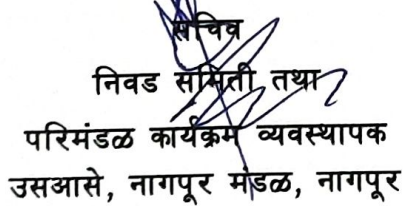 सचिव
निवड समिती तथा
परिमंडळ कार्यक्रम व्यवस्थापक
उसआसे, नागपूर मंडळ, नागपूर